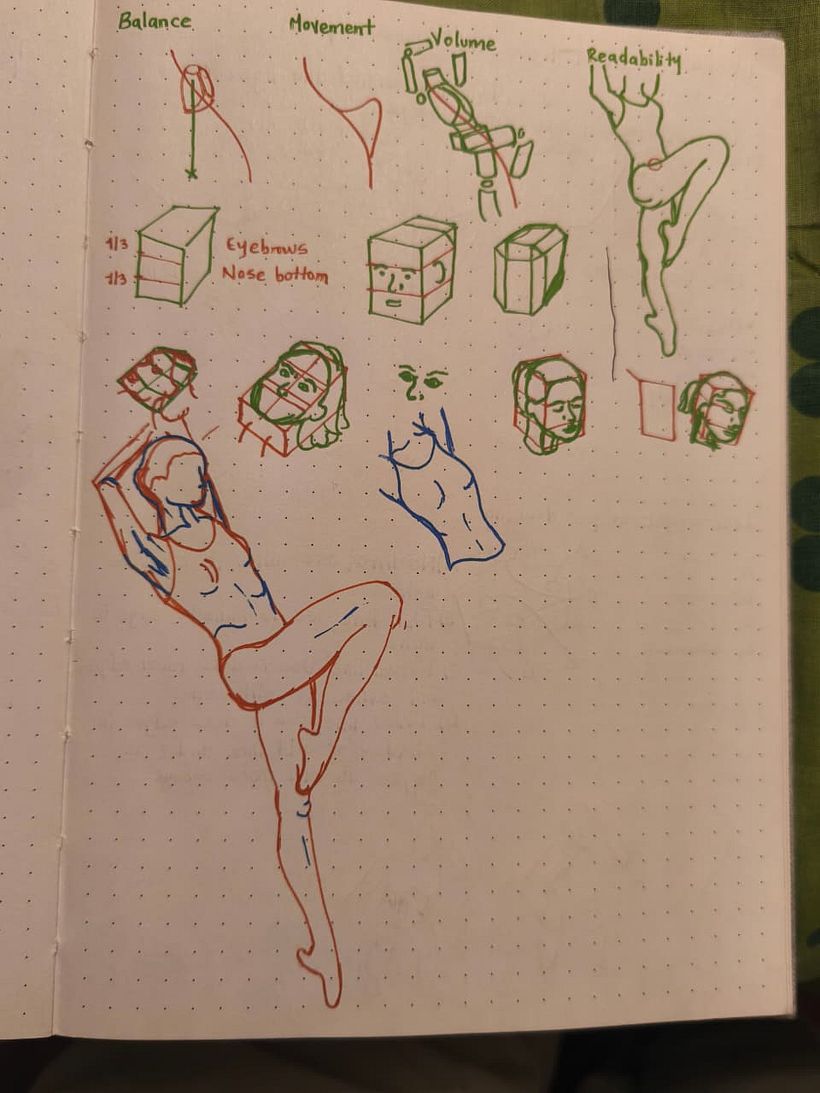 Balance
Movement
Volume
Readability
1/3
Eyebrows
1/3
Nose bottom